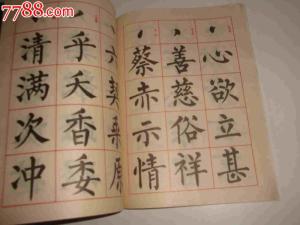 7788.com
心欲立甚
善慈俗祥
蔡赤示情
六
乎夭香委
清满次冲